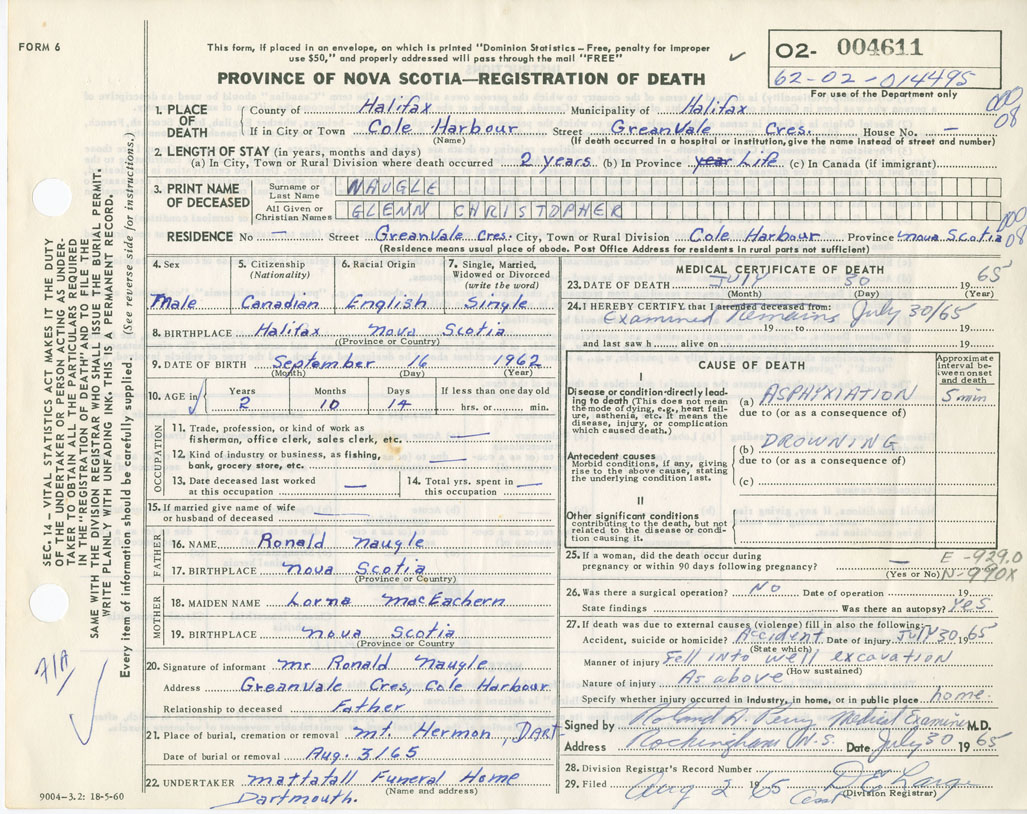 FORM 6
This form, if placed in an envelope, on which is printed "Dominion Statistics—Free, penalty for improper
use $50," and properly addressed will pass through the mail "FREE"
PROVINCE OF NOVA SCOTIA—REGISTRATION OF DEATH
02- 004611
62-02-014495
For use of the Department only
000
08
1. PLACE OF DEATH
County of Halifax Municipality of Halifax
If in City or Town Cole Harbour Street GreanVale Cres. House No. —
(Name) (If death occurred in a hospital or institution, give the name instead of street and number)
2. LENGTH OF STAY (in years, months and days)
(a) In City, Town or Rural Division where death occurred 2 years (b) In Province year Life (c) In Canada (if immigrant)
3. PRINT NAME OF DECEASED
Surname or Last Name NAUGLE
All Given or Christian Names GLENN CHRISTOPHER
000
08
RESIDENCE No — Street GreanVale Cres. City, Town or Rural Division Cole Harbour Province Nova Scotia
(Residence means usual place of abode. Post Office Address for residents in rural parts not sufficient)
4. Sex
Male
5. Citizenship
(Nationality)
Canadian
6. Racial Origin
English
7. Single, Married,
Widowed or Divorced
(write the word)
Single
8. BIRTHPLACE Halifax Nova Scotia
(Province or Country)
9. DATE OF BIRTH September 16 1962
(Month) (Day) (Year)
10. AGE in Years Months Days If less than one day old
2 10 14 hrs. or min.
OCCUPATION
11. Trade, profession, or kind of work as
fisherman, office clerk, sales clerk, etc. —
12. Kind of industry or business, as fishing,
bank, grocery store, etc. —
13. Date deceased last worked
at this occupation —
14. Total yrs. spent in
this occupation —
15. If married give name of wife
or husband of deceased —
FATHER
16. NAME Ronald Naugle
17. BIRTHPLACE Nova Scotia
(Province or Country)
MOTHER
18. MAIDEN NAME Lorna MacEachern
19. BIRTHPLACE Nova Scotia
(Province or Country)
20. Signature of informant Mr Ronald Naugle
Address GreanVale Cres, Cole Harbour
Relationship to deceased Father
21. Place of burial, cremation or removal Mt. Hermon, DART
Date of burial or removal Aug. 3/65
22. UNDERTAKER Mattatall Funeral Home
(Name and address)
Dartmouth.
MEDICAL CERTIFICATE OF DEATH
23. DATE OF DEATH JULY 30 1965
(Month) (Day) (Year)
24. I HEREBY CERTIFY that I attended deceased from:
Examined Remains July 30/65
19 to 19
and last saw h alive on 19
CAUSE OF DEATH
Approximate
interval be-
tween onset
and death
I
Disease or condition directly lead-
ing to death (This does not mean
the mode of dying, e.g., heart fail-
ure, asthenia, etc. It means the
disease, injury, or complication
which caused death.)
(a) ASPHYXIATION 5 min
due to (or as a consequence of)
Antecedent causes
Morbid conditions, if any, giving
rise to the above cause, stating
the underlying condition last.
(b) DROWNING
due to (or as a consequence of)
(c)
II
Other significant conditions
contributing to the death, but not
related to the disease or condi-
tion causing it.
25. If a woman, did the death occur during
pregnancy or within 90 days following pregnancy? —
(Yes or No)
E-929.0
N-990X
26. Was there a surgical operation? No Date of operation 19
State findings Was there an autopsy? Yes
27. If death was due to external causes (violence) fill in also the following:
Accident, suicide or homicide? Accident Date of injury JULY 30 1965
(State which)
Manner of injury Fell into well excavation
(How sustained)
Nature of injury As above
Specify whether injury occurred in industry, in home, or in public place home.
Signed by Roland A. Perry Medical Examiner M.D.
Address Rockingham N.S. Date July 30 1965
28. Division Registrar's Record Number
29. Filed Aug 2 1965
(Division Registrar)
SEC. 14—VITAL STATISTICS ACT MAKES IT THE DUTY
OF THE UNDERTAKER OR PERSON ACTING AS UNDER-
TAKER TO OBTAIN ALL THE PARTICULARS REQUIRED
IN THE "REGISTRATION OF DEATH" AND TO FILE THE
SAME WITH THE DIVISION REGISTRAR WHO SHALL ISSUE THE BURIAL PERMIT.
WRITE PLAINLY WITH UNFADING INK. THIS IS A PERMANENT RECORD.
Every item of information should be carefully supplied. (See reverse side for instructions.)
9004-3.2: 18-5-60